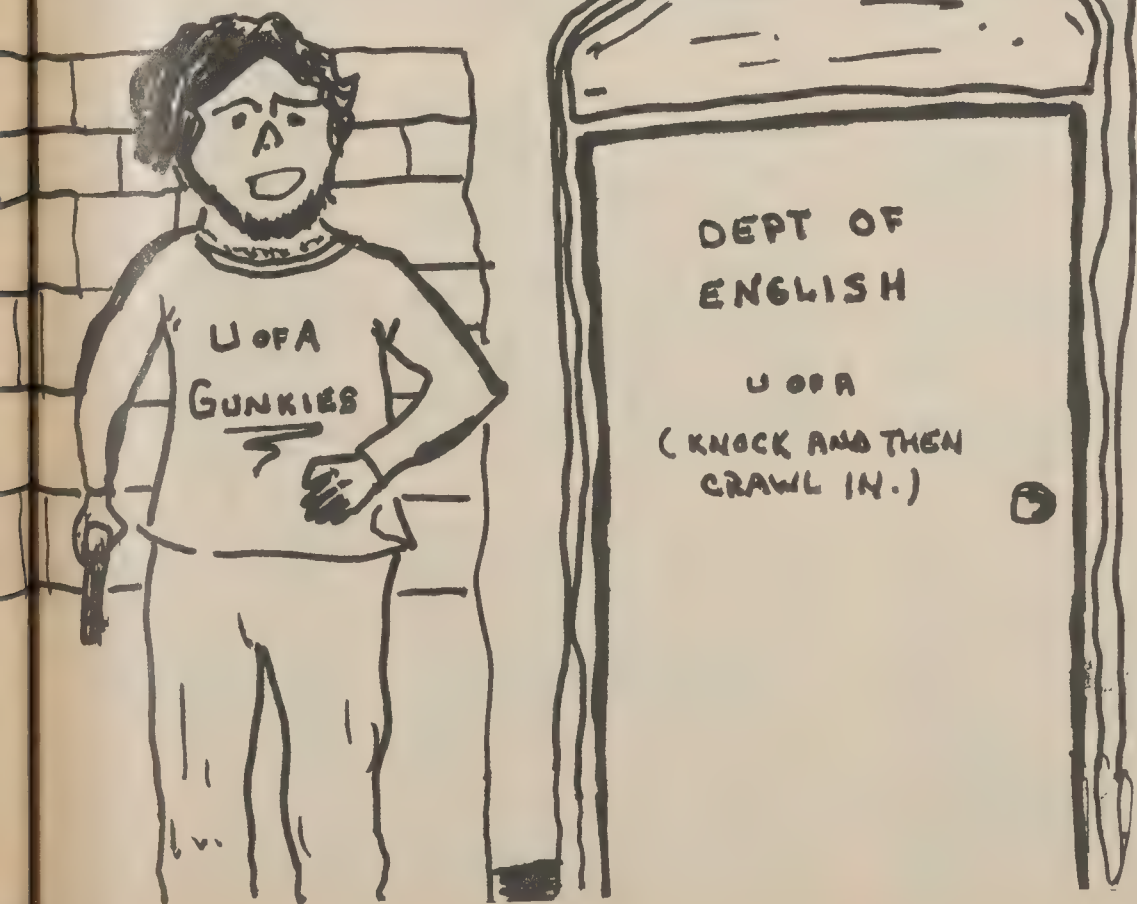 U OF A
GUNKIES
DEPT OF
ENGLISH
U OF A
(KNOCK AND THEN
CRAWL IN.)